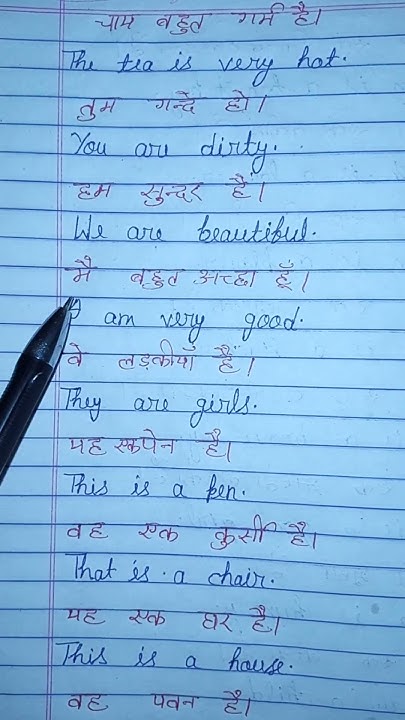 चाय बहुत गर्म है।
The tea is very hot.
तुम गन्दे हो।
You are dirty.
हम सुन्दर हैं।
We are beautiful.
मै बहुत अच्छा हूँ।
I am very good.
वे लड़कीयाँ हैं।
They are girls.
यह एक पेन है।
This is a pen.
वह एक कुर्सी है।
That is a chair.
यह एक घर है।
This is a house.
वह पवन है।